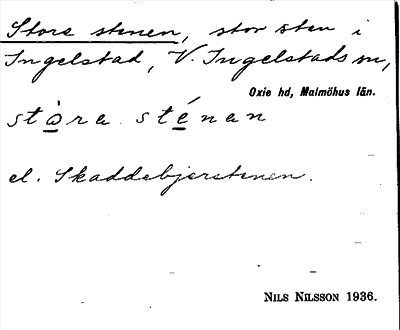 Stora stenen, stor sten i
Ingelstad, V. Ingelstads sn,
Oxie hd, Malmöhus län.
stòra sténan
el. Skaddebjerstenen.
NILS NILSSON 1936.